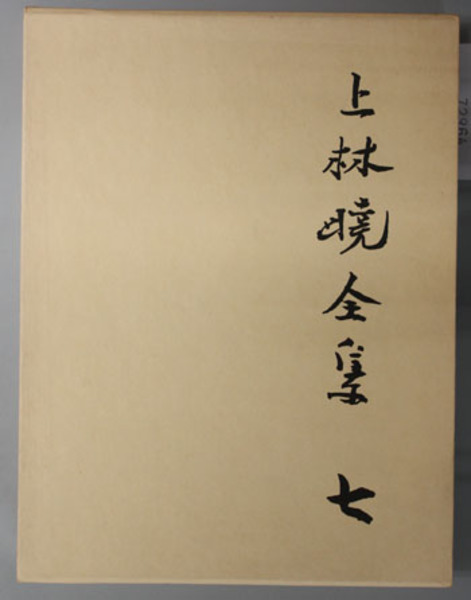 上林曉全集 七